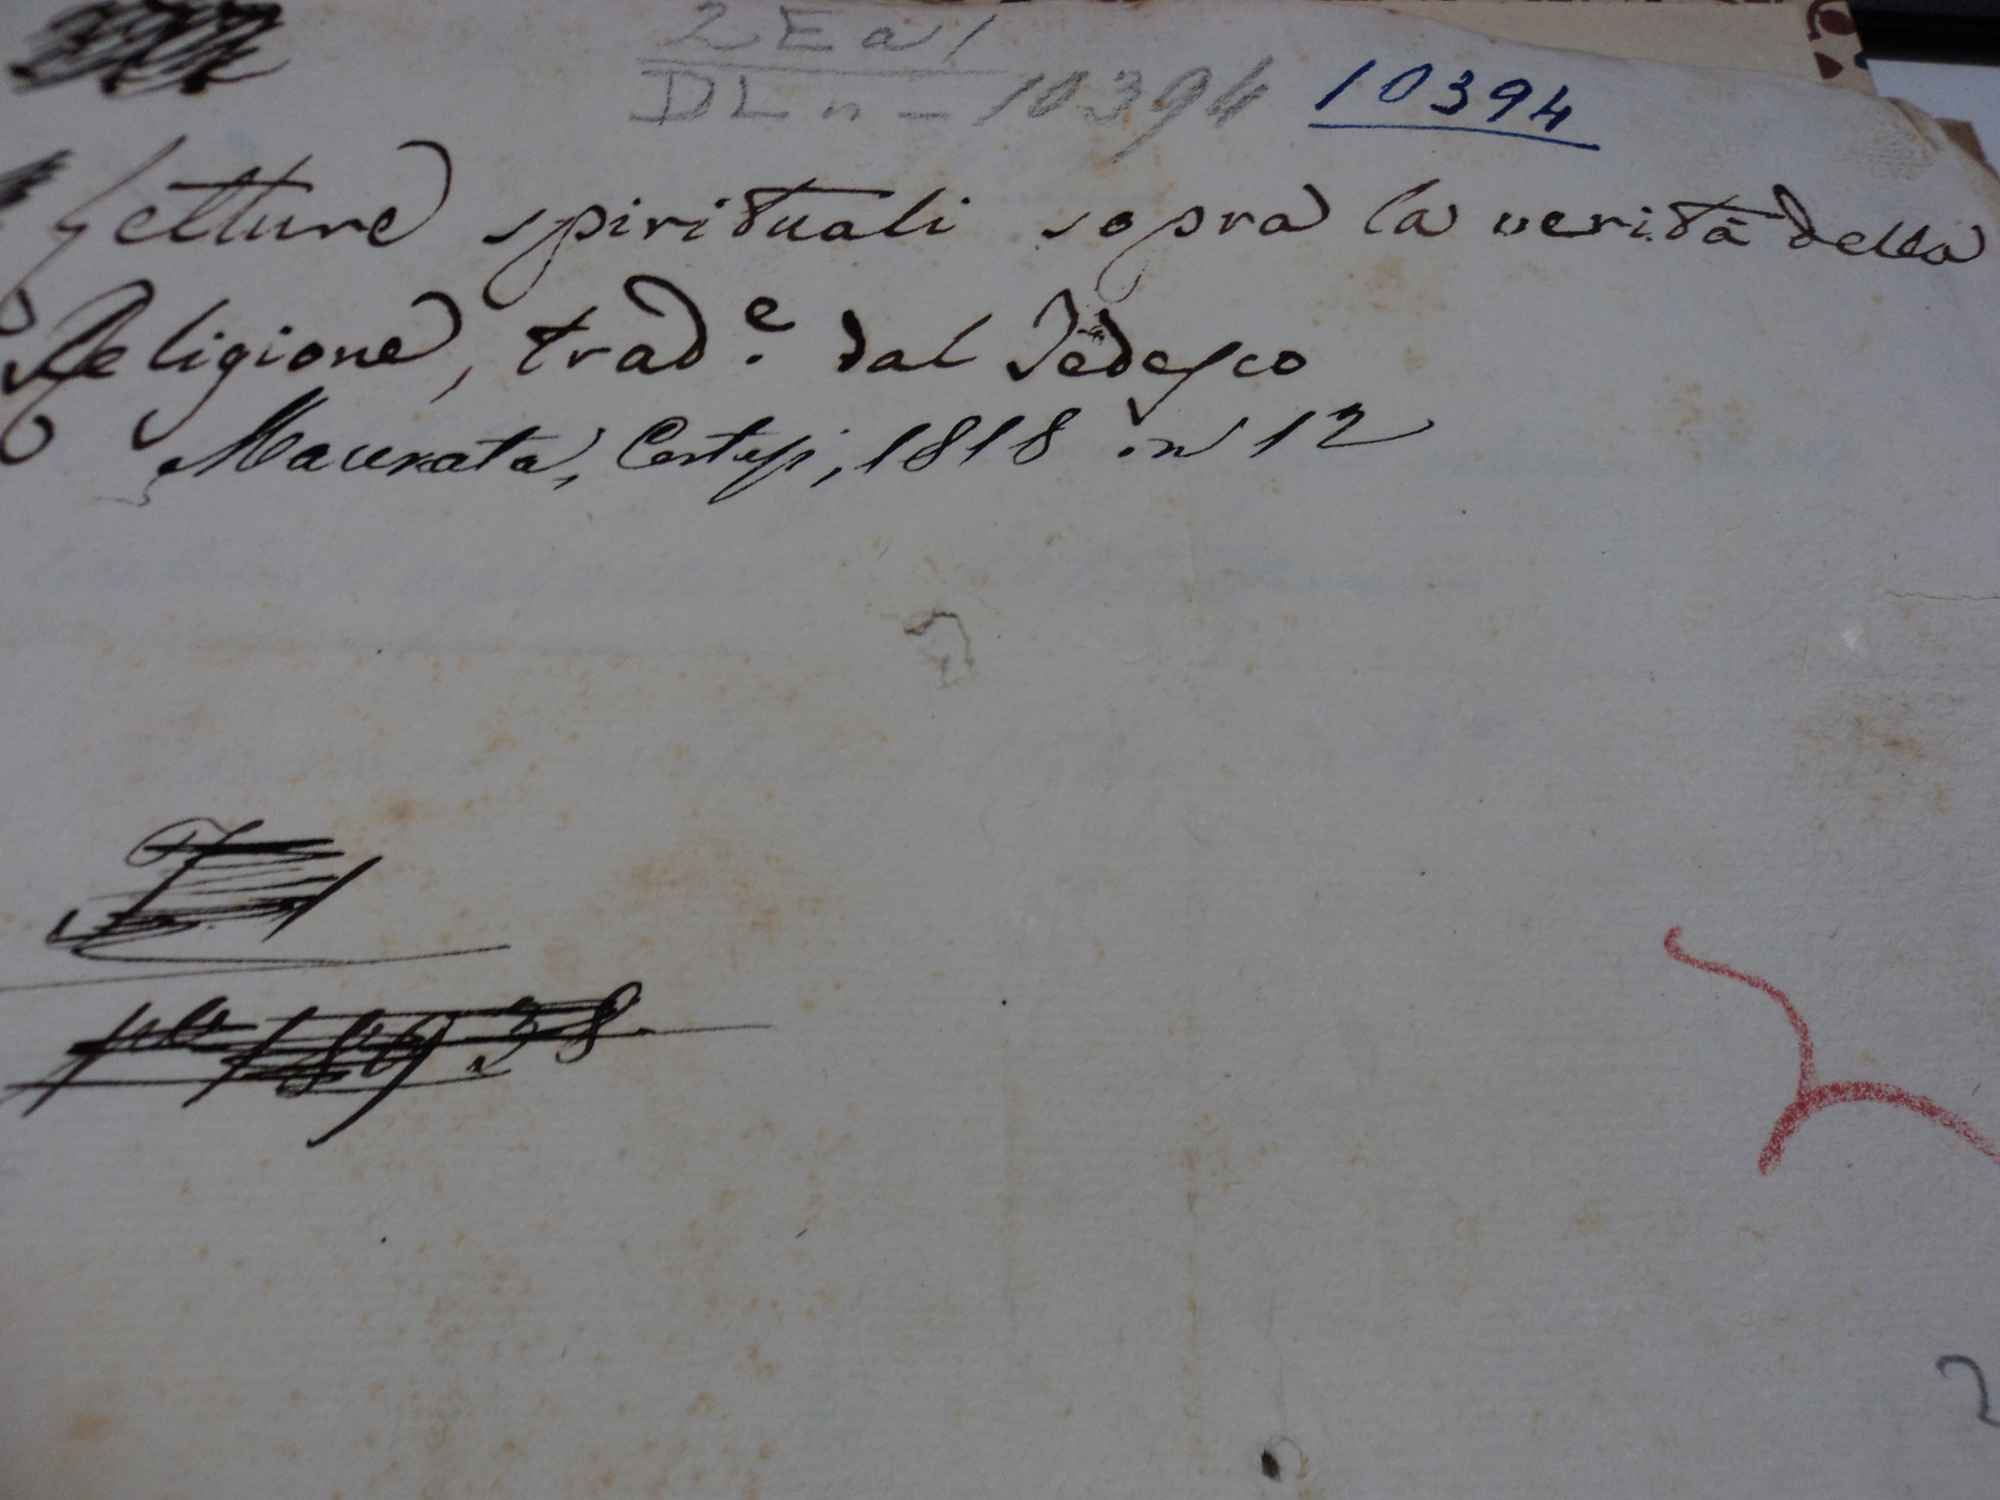 2 E a 1
DL n - 10394 10394
Letture spirituali sopra la verità della
Religione, trad.e dal Tedesco
Macerata, Cortesi, 1818 in 12